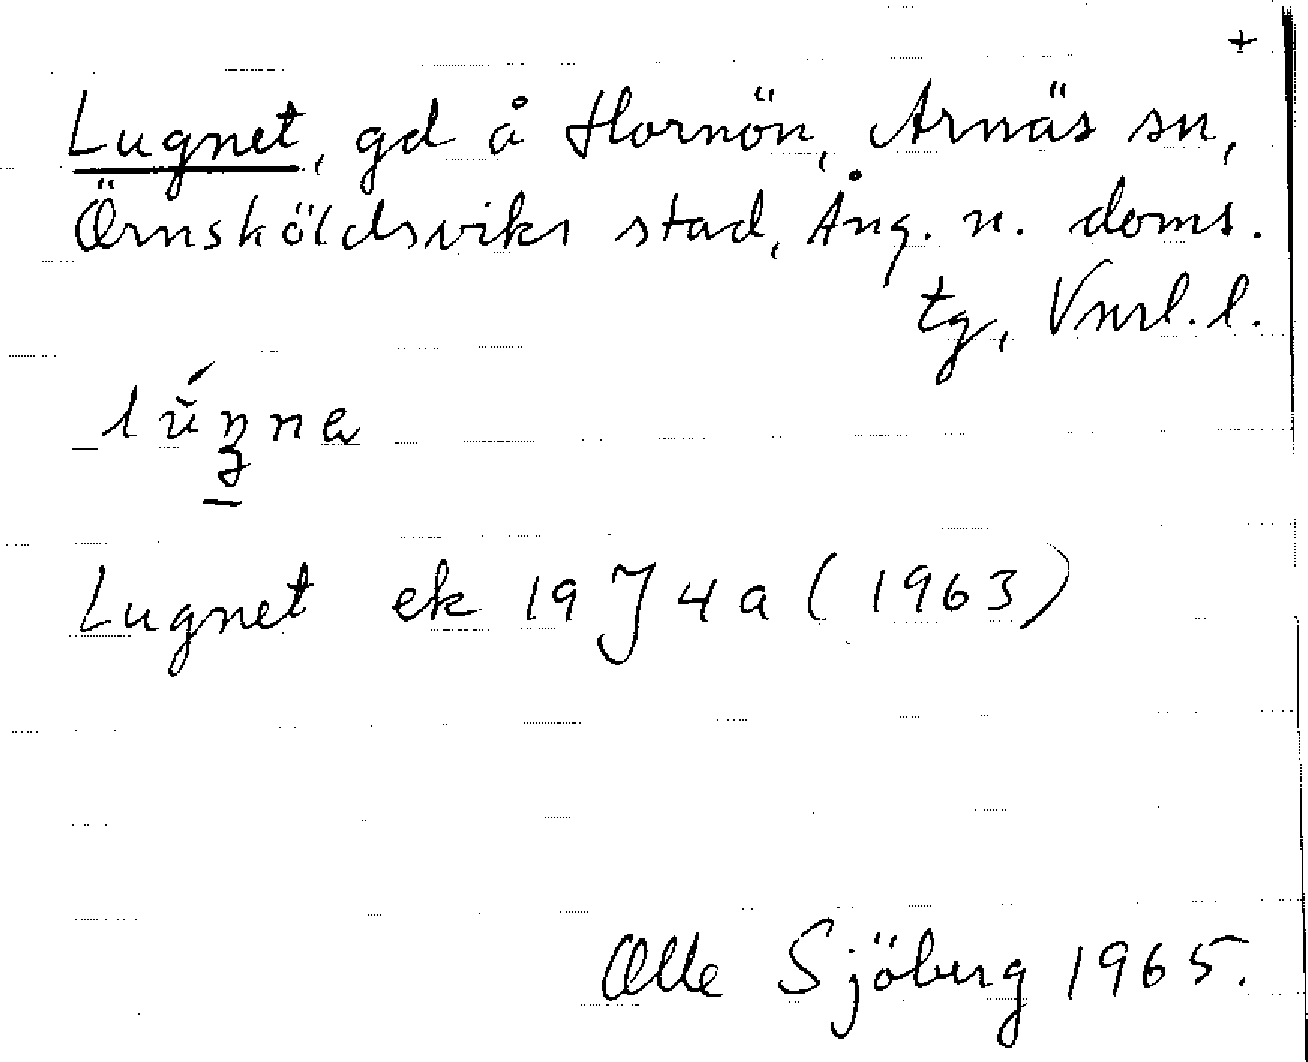 +
Lugnet, gd å Hornön, Arnäs sn,
Örnsköldsviks stad, Ång. n. doms.
tg, Vnrl. l.
Lugnet ek 19 J 4 a (1963)
Olle Sjöberg 1965.